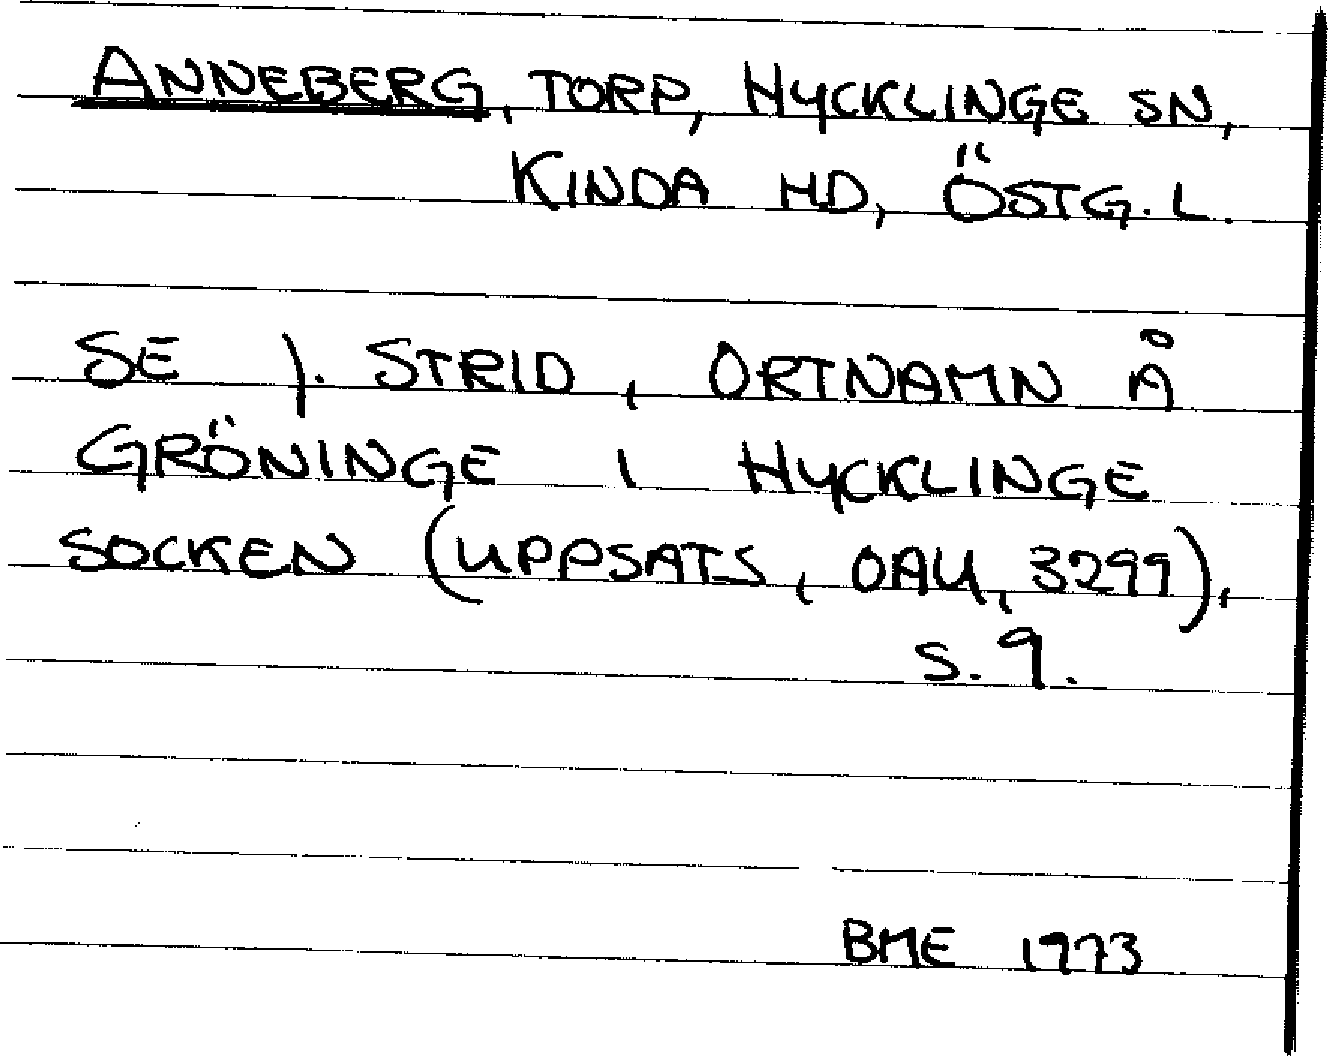 ANNEBERG, TORP, HYCKLINGE SN,
KINDA HD, ÖSTG. L.
SE J. STRID, ORTNAMN Å
GRÖNINGE I HYCKLINGE
SOCKEN (UPPSATS, OAU, 3299),
S. 9.
BME 1973